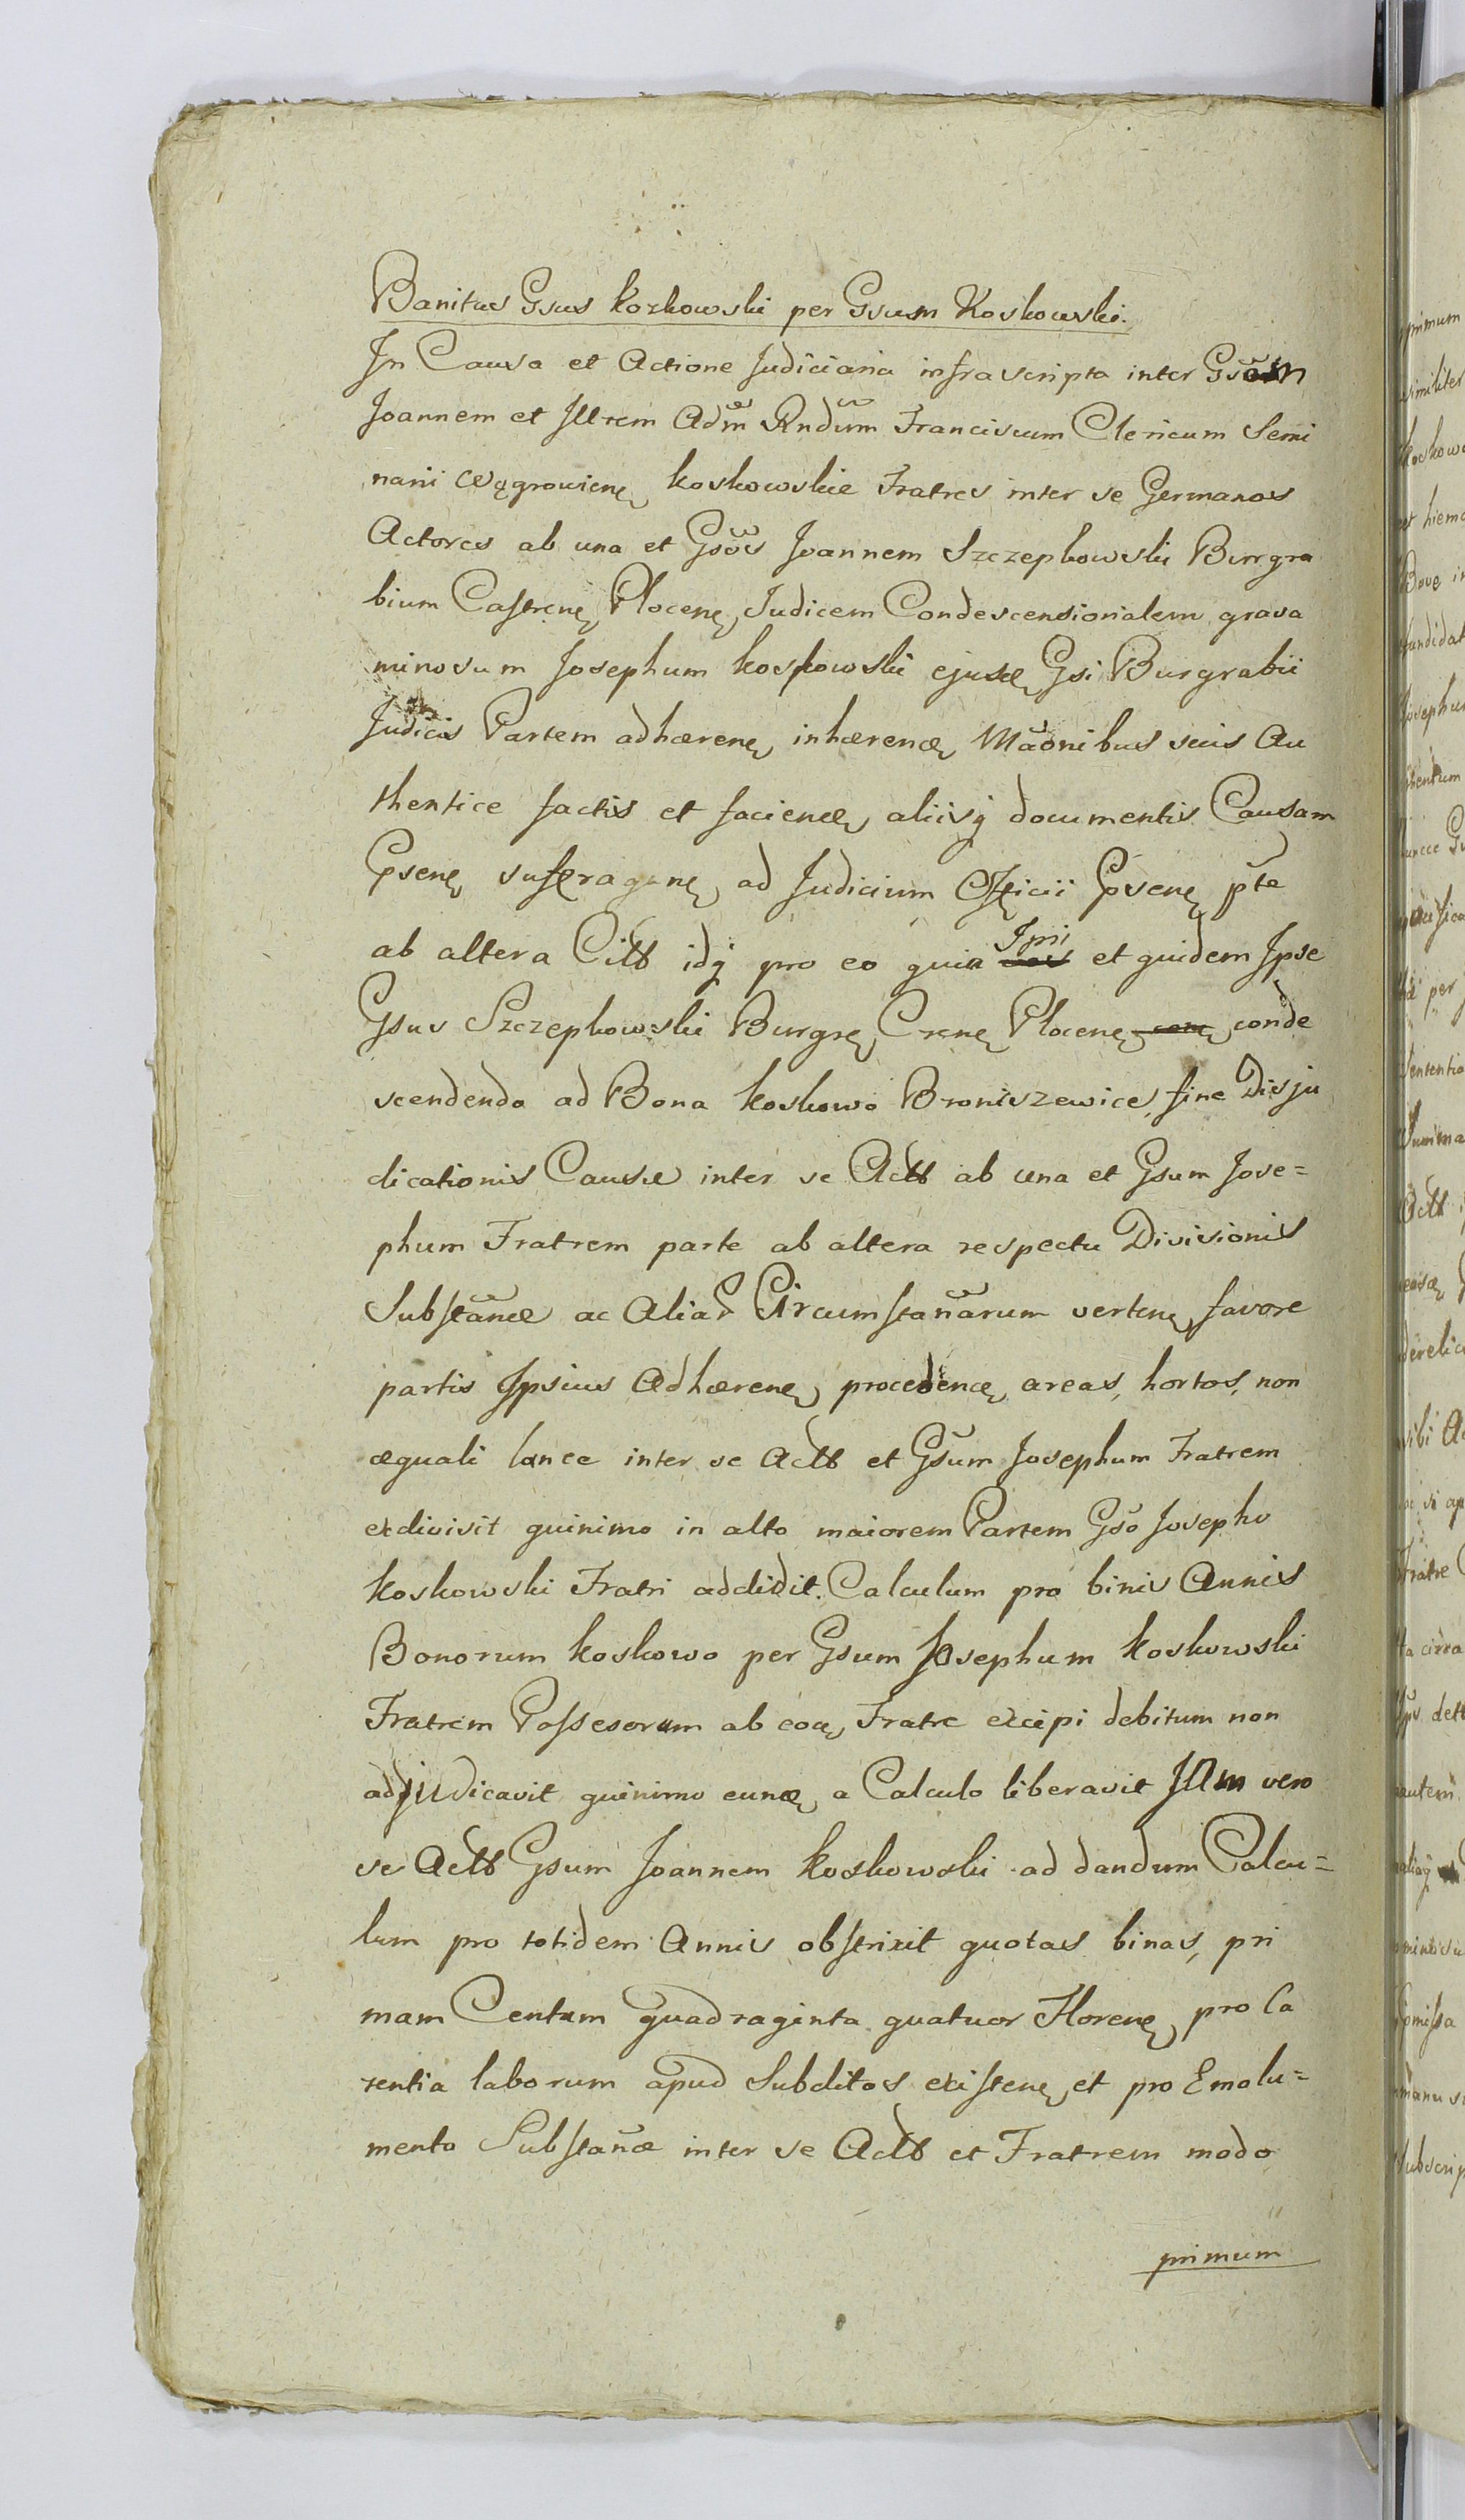 Banitus Gsus Koskowski per Gsum Koskowski.
In Causa et Actione Judiciaria infrascripta inter Gsum
Joannem et Illrem Adm Rndum Franciscum Clericum Semi
narii Węgrowienę Koskowskie Fratres inter se Germanos
Actores ab una et Gsos Joannem Szczepkowski Burgra
bium Castrenę Plocenę Judicem Condescensionalem grava
minosum Josephum Koskowski ejusdę Gsi Burgrabii
Judicis Partem adhærenę inhærendę Maonibus suis Au
thentice factis et faciendę aliisq documentis Causam
Psenę sufragănę ad Judicium Officii Psenę pte
ab altera Citt idq pro eo quia Ipsi et quidem Ipse
Gsus Szczepkowski Burgrę Crenę Plocenę conde
scendendo ad Bona Koskowo Broniszewice, fine Disju
dicationis Causæ inter se Actt ab una et Gsum Jose=
phum Fratrem parte ab altera respectu Divisionis
Substanæ ac Aliar Circumstanarum vertenę, favore
partis Ipsius Adhærenę, procedendę areas, hortos, non
æquali lance inter se Actt et Gsum Josephum Fratrem
exdivisit quinimo in alto maiorem Partem Gso Josepho
Koskowski Fratri addidit. Calculum pro binis Annis
Bonorum Koskowo per Gsum Josephum Koskowski
Fratrem Possesorum ab eodę Fratre excipi debitum non
adjudicavit quinimo eundę a Calculo liberavit Jam vero
se Actt Gsum Joannem Koskowski ad dandum Calcu=
lum pro totidem Annis obstrixit quotas binas, pri
mam Centum quadraginta quatuor Florenę pro Ca
rentia laborum apud Subditos existenę et pro Emolu=
mento Substanæ inter se Actt et Fratrem modo
primum